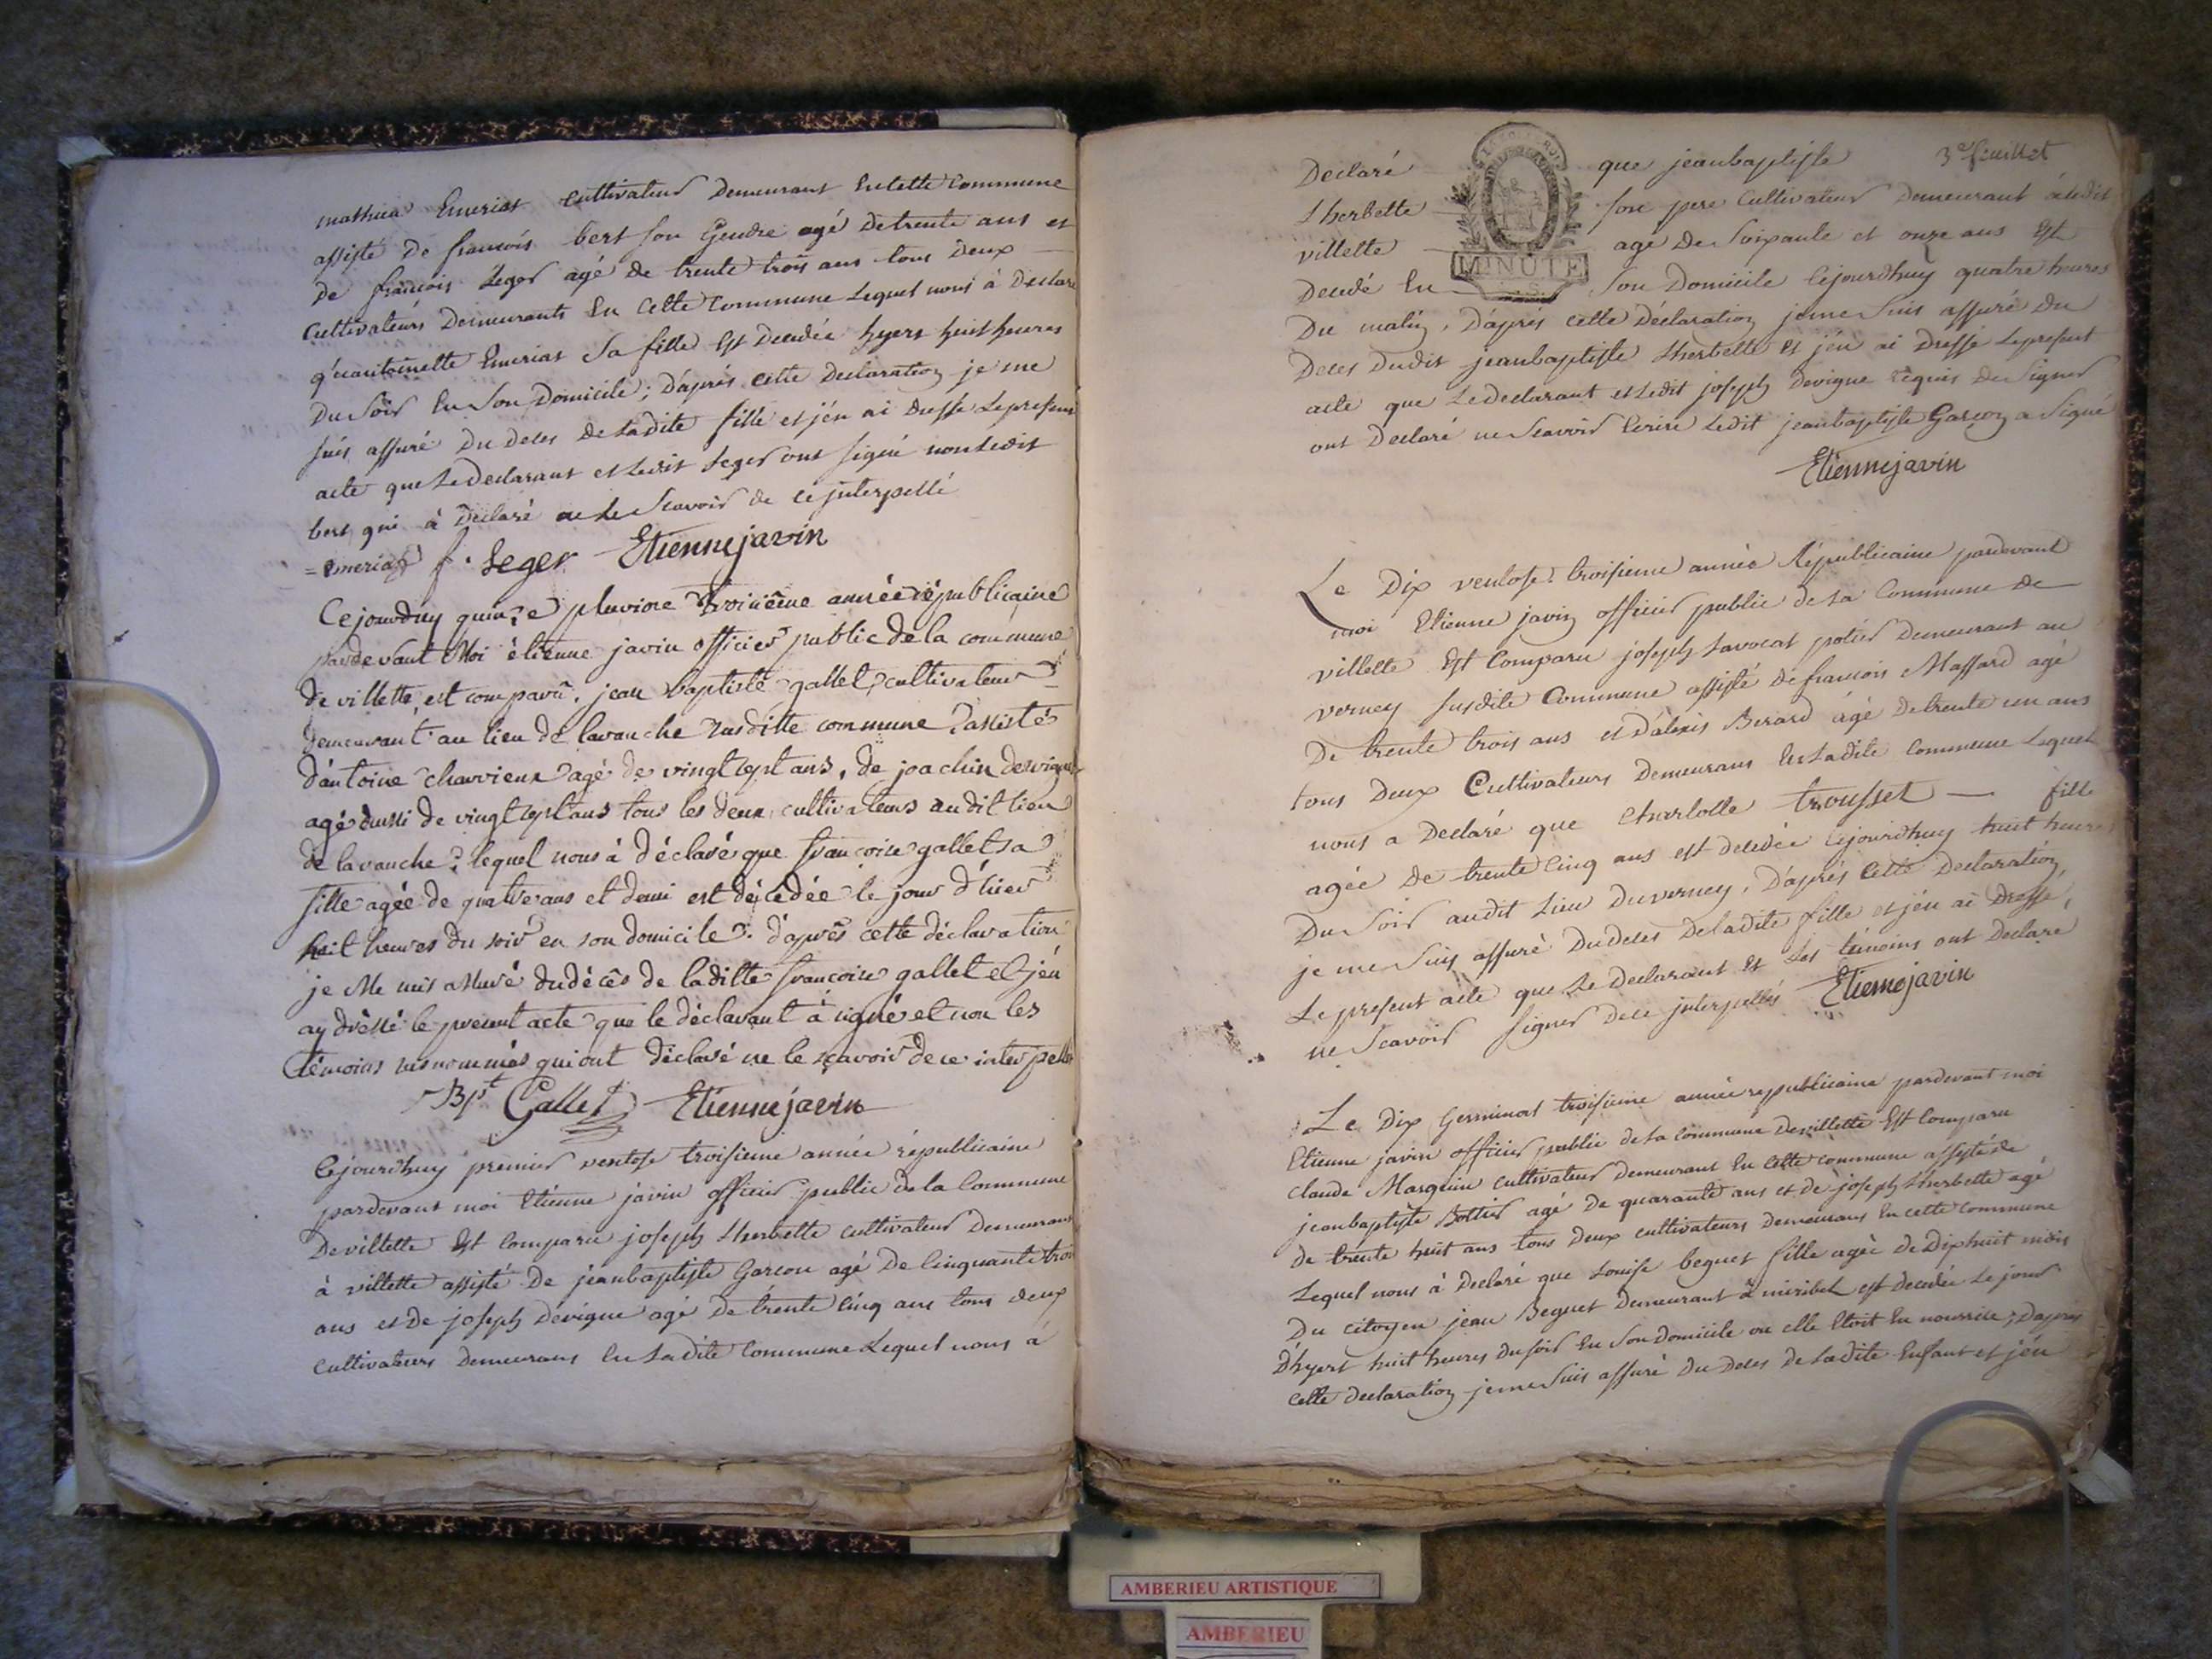 mathieu Emeriat cultivateur Demeurant En cette Commune
assisté de francois bert son Gendre agé de trente ans et
De francois Leger agé de trente trois ans tous Deux
Cultivateurs Demeurants En Cette Commune Lequel nous à Declaré
qu'antoinette Emeriat Sa fille Est Decedée hyert huit heures
Du Soir En Son Domicile ; D'après cette Declaration je me
suis assuré Du Deces de Ladite fille et j'en ai dressé Le present
acte que Le Declarant et Ledit Leger ont signé non Ledit
bert qui à Declaré ne Le Scavoir de ce jnterpellé
= emeriat f. Leger Etienne javin
Cejourduy quinze pluviose troisième année républicaine
pardevant Moi étienne javin officier public de la commune
de villette, est comparû, jean baptiste gallet, cultivateur
demeurant au lieu de lavanche susditte commune assisté
d'antoine chavrieux agé de vingt sept ans, de joachin devigne
agé aussi de vingt sept ans tous les deux cultivateurs audit lieu
de lavanche, lequel nous à déclaré que francoise gallet sa
fille agée de quatre ans et demi est décédée le jour d'hier
huit heures du soir en son domicile. d'après cette déclaration
je Me suis assuré du décês de laditte francoise gallet et j'en
ay drêssé le present acte que le déclarant à signé et non les
témoins susnommés qui ont déclaré ne le sçavoir de ce interpellé
JBpt Gallet Etienne javin
Cejourdhuy premier ventose troisieme année républicaine
pardevant moi Etienne javin officier public de la Commune
De villette Est Comparu joseph Lherbette cultivateur Demeurant
à villette assisté De jeanbaptiste Garcon agé De Cinquante trois
ans et De joseph Devigne agé De trente cinq ans tous deux
cultivateurs Demeurans En Ladite Commune Lequel nous à
3e feuillet
Declaré que jeanbaptiste
Lherbette son pere Cultivateur Demeurant àudit
villette agé De Soixante et onze ans Est
MINUTE
Decedé En Son Domicile Cejourdhuy quatre heures
Du matin, D'après cette Déclaration je me Suis assuré Du
Deces Dudit jeanbaptiste Lherbette et j'en ai Dressé Le present
acte que Le declarant et Ledit joseph Devigne requis De Signer
ont Declaré ne Scavoir Ecrire Ledit jeanbaptiste Garcon a Signé
Etienne javin
Le Dix ventose troisieme année Républicaine pardevant
moi Etienne javin officier public de La Commune De
villette Est Comparu joseph Lavocat potier Demeurant au
verney susdite Commune assisté De francois Massard agé
De trente trois ans et D'alexis Berard agé De trente un ans
tous Deux Cultivateurs Demeurans En Ladite Commune Lequel
nous a Declaré que Charlotte trousset — fille
agée De trente Cinq ans est decedée Cejourdhuy huit heures
Du Soir audit Lieu Du verney, D'après Cette Declaration,
je me Suis assuré Du Deces De Ladite fille et j'en ai Dressé,
Le present acte que Le Declarant Et Les témoins ont Declaré
ne Scavoir signer De ce jnterpellés Etienne javin
Le Dix Germinal troisieme année republicaine pardevant moi
Etienne javin officier public de La Commune De villette Est Comparu
Claude Marguin Cultivateur Demeurant En Cette Commune assisté De
jeanbaptiste Bottier agé de quarante ans et de joseph Lherbette agé
de trente huit ans tous Deux cultivateurs Demeurans En cette Commune
Lequel nous à Declaré que Louise beguet fille agée de Dix huit mois
Du Citoyen jean Beguet Demeurant à miribel est decedée Le jour
D'hyert huit heures Du soir En Son Domicile ou elle Etoit En nourrice ; D'après
Cette Declaration je me Suis assuré Du Deces De Ladite Enfant et j'en
AMBERIEU ARTISTIQUE
AMBERIEU